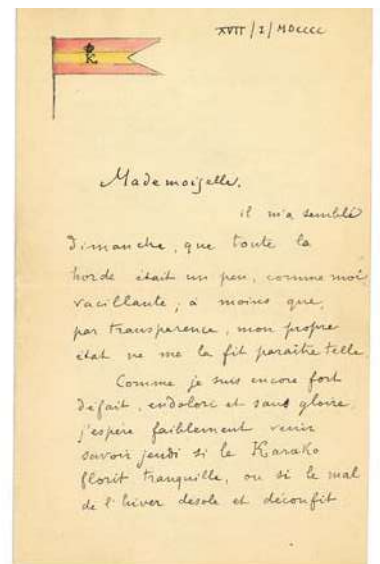 XVII/I/MDCCCC
K
Mademoiselle.
il m'a semblé
Dimanche, que toute la
horde était un peu, comme moi,
vacillante; à moins que,
par transparence, mon propre
état ne me la fît paraître telle.
Comme je suis encore fort
défait, endolori et sans gloire,
j'espère faiblement venir
savoir jeudi si le Karako
florit tranquille, ou si le mal
de l'hiver désole et déconfit